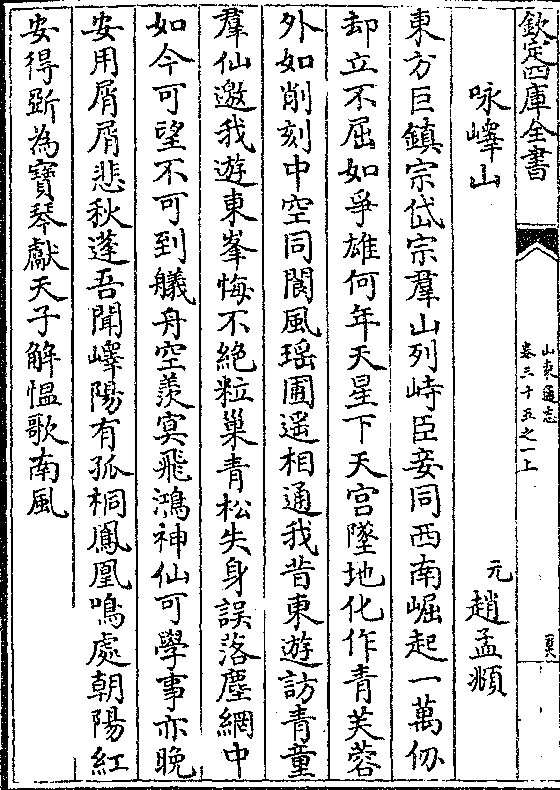 欽定四庫全書
山東通志
卷三十五之一上
咏嶧山
元
趙孟頫
東方巨鎮宗岱宗羣山列峙臣妾同西南崛起一萬仞
却立不屈如爭雄何年天星下天宮墜地化作青芙蓉
外如削刻中空同閬風瑶圃遥相通我昔東遊訪青童
羣仙邀我遊東峯悔不絶粒巢青松失身誤落塵網中
如今可望不可到艤舟空羨冥飛鴻神仙可學事亦晚
安用屑屑悲秋蓬吾聞嶧陽有孤桐鳳凰鳴處朝陽紅
安得斲為寶琴獻天子解愠歌南風